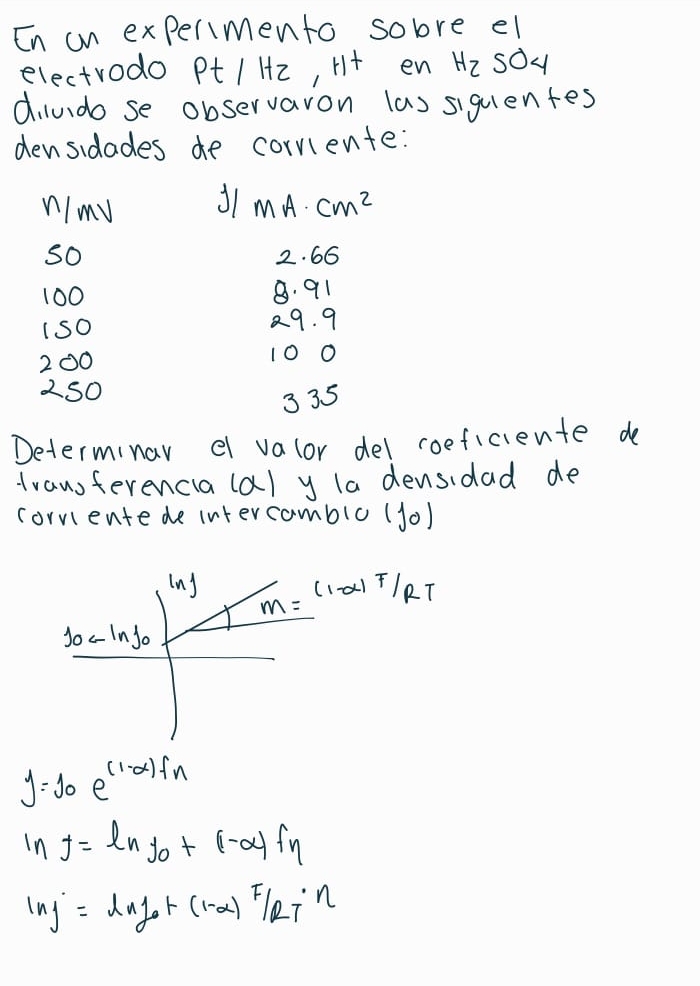 En un experimento sobre el
electrodo Pt / H2 , H+ en H2 SO4
diluido se observaron las siguientes
densidades de corriente:
n/mV J/ mA · cm²
50 2.66
100 8.91
150 29.9
200 10 0
250 335
Determinar el valor del coeficiente de
transferencia (α) y la densidad de
corriente de intercambio (jo)
ln j
m = (1-α) F/RT
jo ← ln jo
j = jo e^(1-α)fn
ln j = ln jo + (1-α) fη
ln j = ln jo + (1-α) F/RT · n